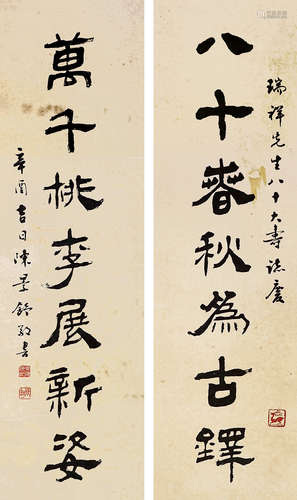 瑞祥先生八十大壽誌慶
八十春秋為古鐸
萬千桃李展新姿
辛酉吉日陳景舒敬書